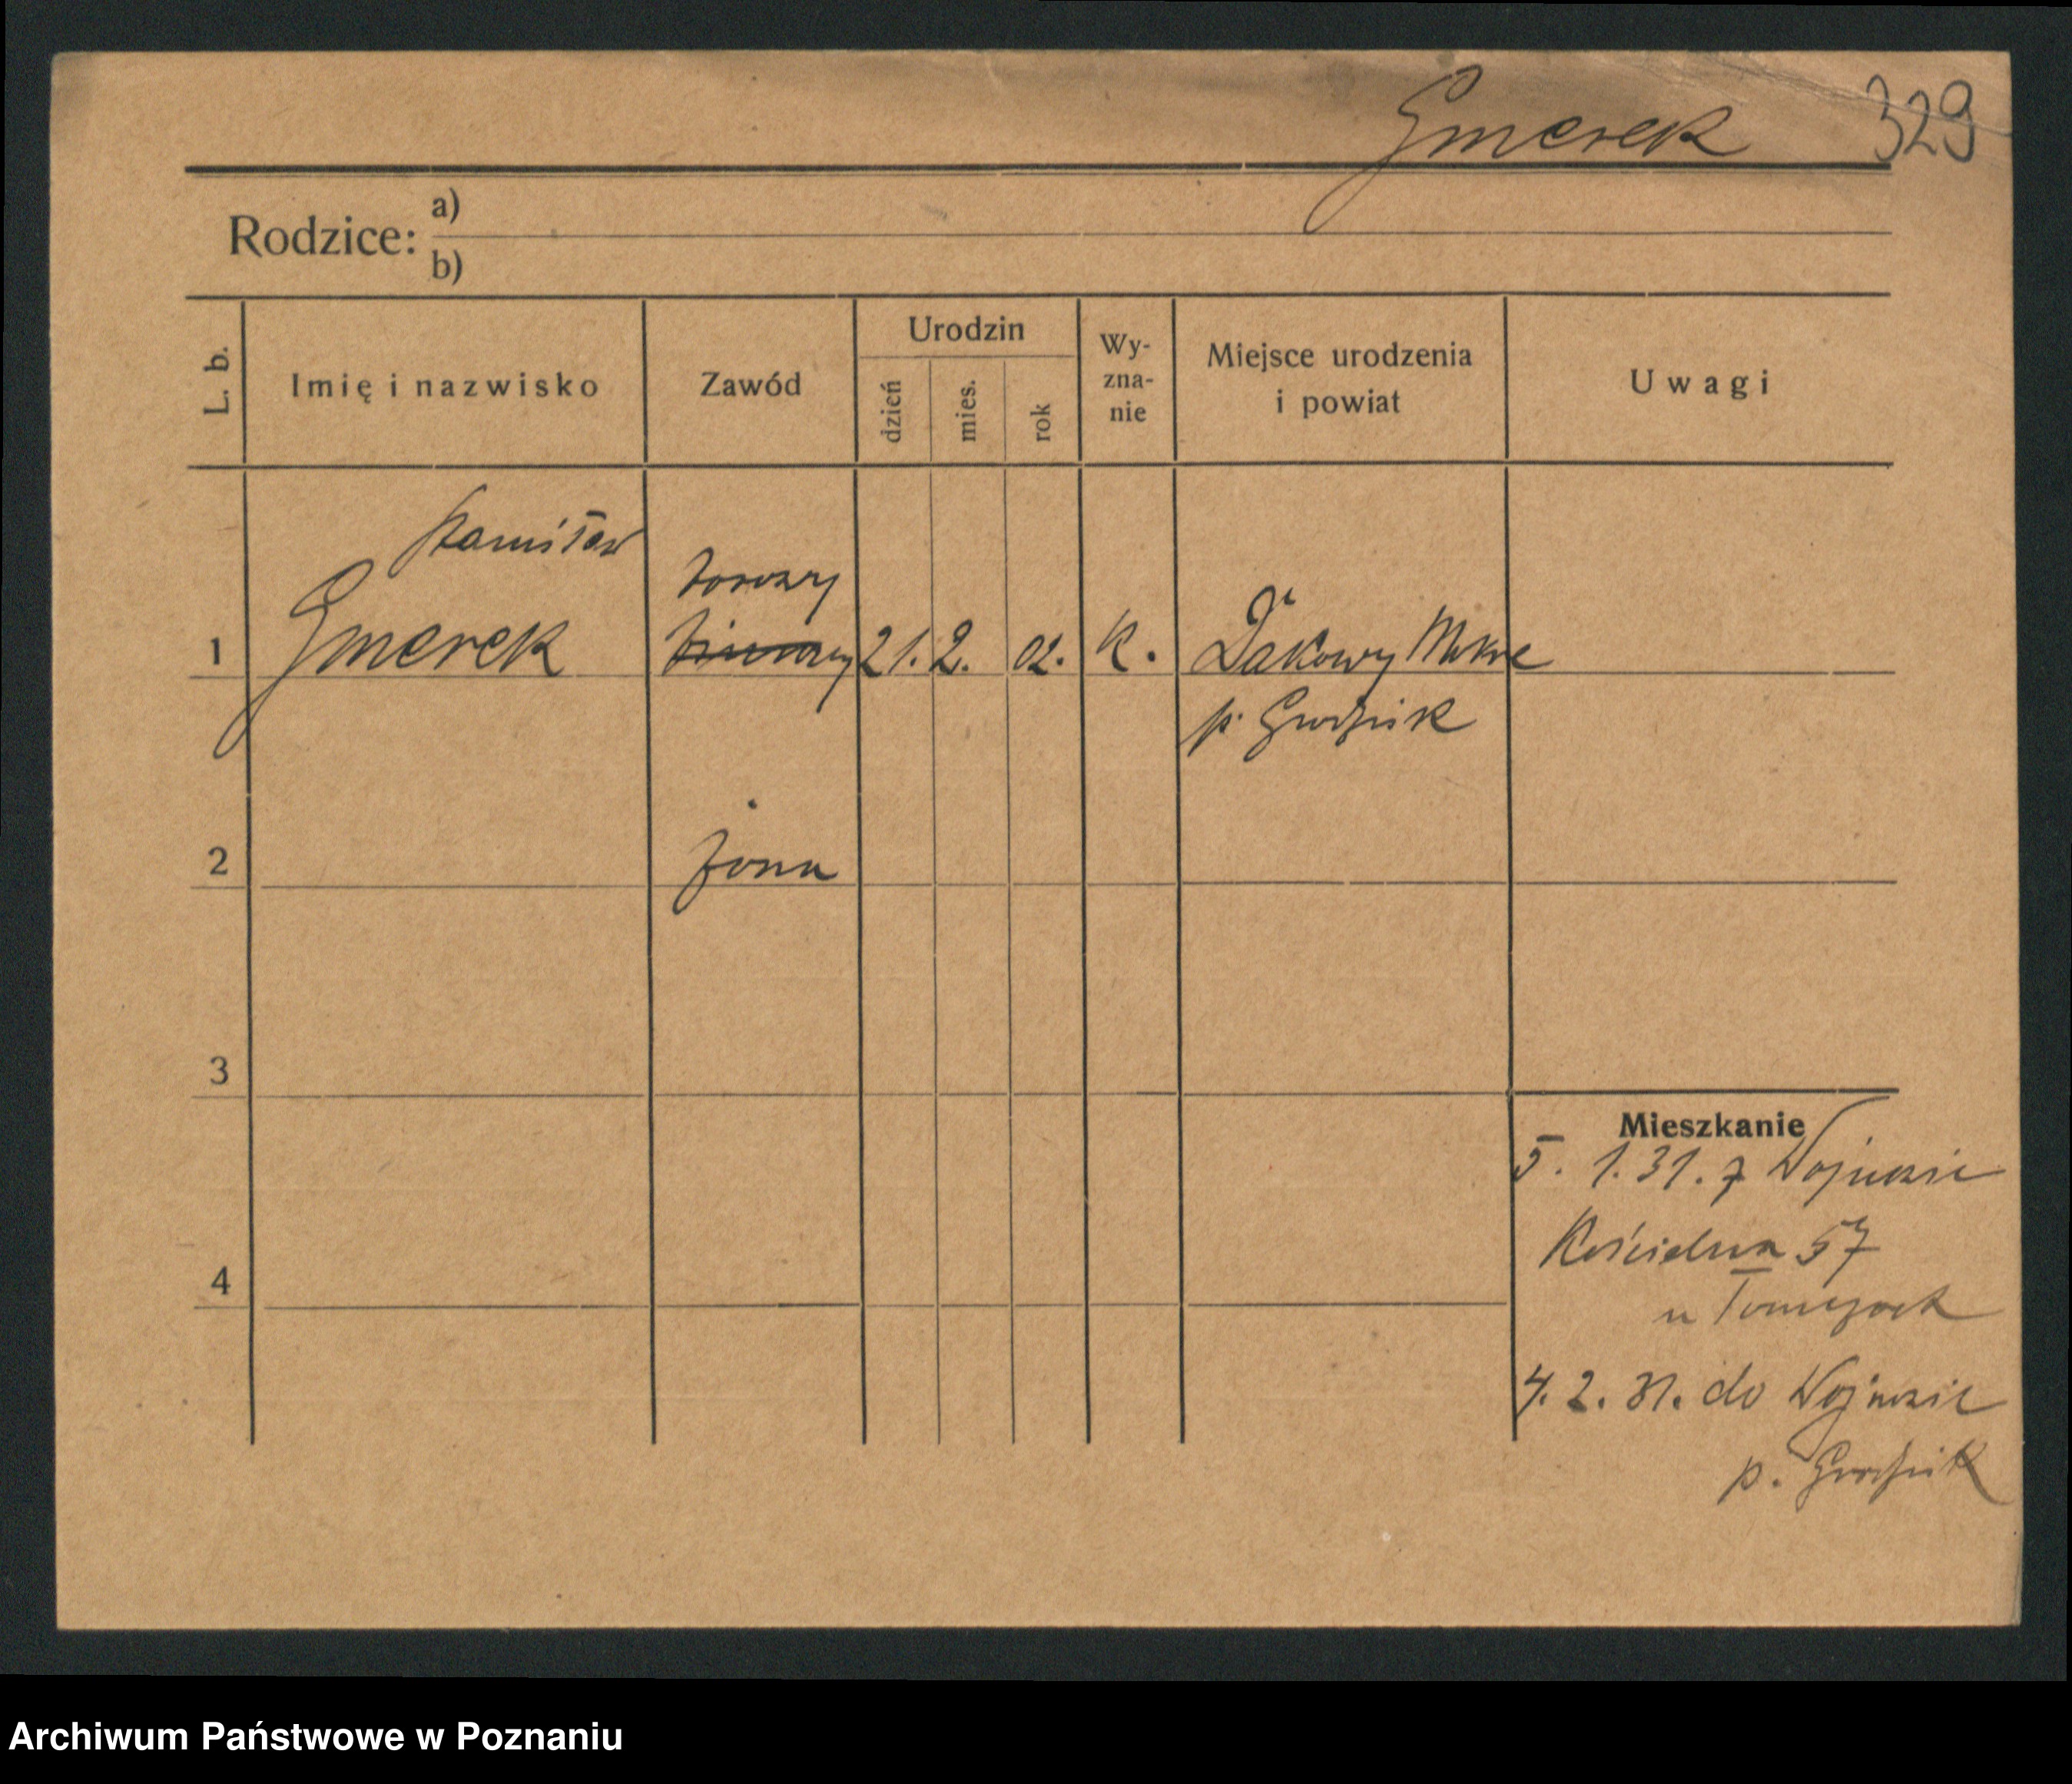 Gmerek 329
Rodzice: a)
b)
L. b. Imię i nazwisko Zawód Urodzin dzień mies. rok Wy-zna-nie Miejsce urodzenia i powiat Uwagi
Stanisław
torowy
1 Gmerek 21. 2. 02. K. Dakowy Mokre
p. Grodzisk
2 żona
3
Mieszkanie
5. 1. 31. z Wojnowic
Kościelna 57
4
u Tomczak
4. 2. 31. do Wojnowic
p. Grodzisk
Archiwum Państwowe w Poznaniu